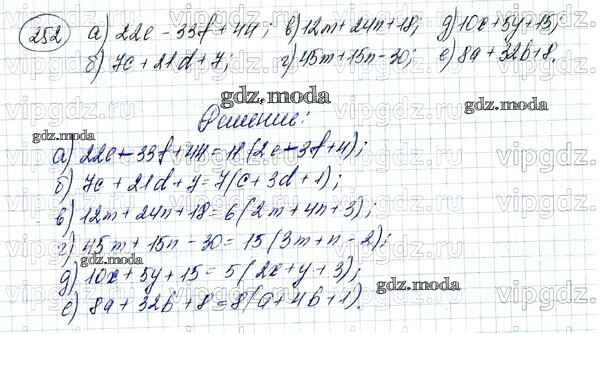 252 а) 22e - 33f + 44; в) 12m + 24n + 18; д) 10x + 5y + 15;
б) 7c + 21d + 7; г) 45m + 15n - 30; е) 8a + 32b + 8.
gdz.moda
Решение:
gdz.moda
gdz.moda
а) 22e - 33f + 44 = 11(2e - 3f + 4);
б) 7c + 21d + 7 = 7(c + 3d + 1);
в) 12m + 24n + 18 = 6(2m + 4n + 3);
г) 45m + 15n - 30 = 15(3m + n - 2);
gdz.moda
д) 10x + 5y + 15 = 5(2x + y + 3);
gdz.moda
е) 8a + 32b + 8 = 8(a + 4b + 1).
vipgdz.ru